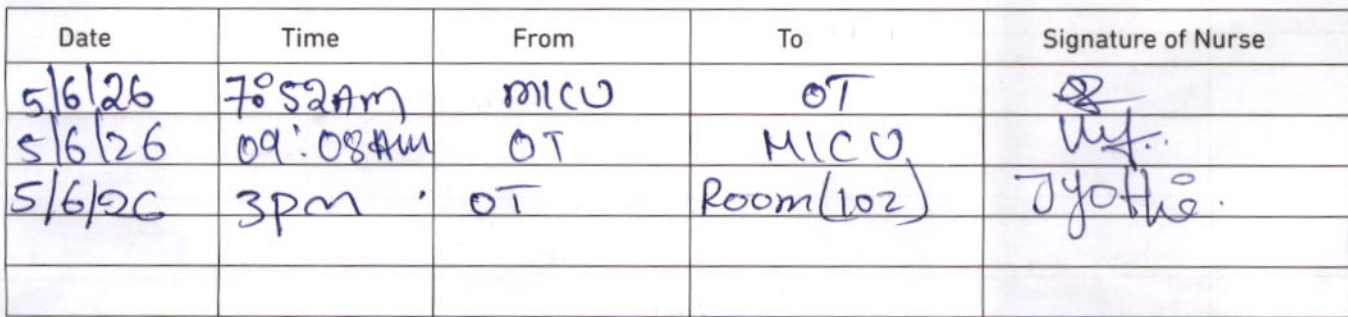 Date Time From To Signature of Nurse
5/6/26 7:52AM MICU OT
5/6/26 09:08AM OT MICU
5/6/26 3pm OT Room(102) Jyothi.